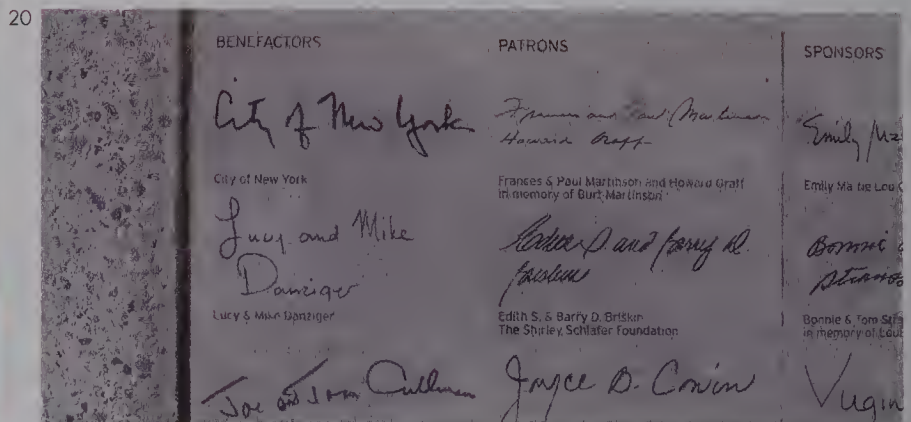 20
BENEFACTORS
City of New York
City of New York
Lucy and Mike
Danziger
Lucy & Mike Danziger
Joe and Joan Cullman
PATRONS
Frances and Paul Martinson
Howard Graff
Frances & Paul Martinson and Howard Graff
in memory of Burt Martinson
Edith S. and Barry D.
Briskin
Edith S. & Barry D. Briskin
The Shirley Schlafer Foundation
Joyce B. Cowin
SPONSORS
Emily
Emily
Bonnie
Bonnie & Tom
in memory of